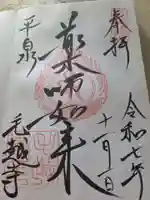 奉拝
令和七年
十一月一日
薬師如来
平泉
毛越寺